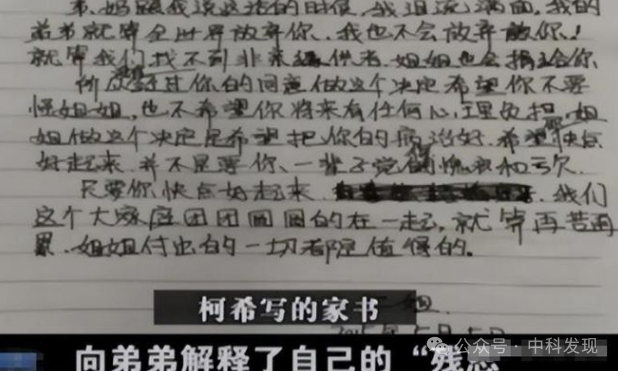 弟、妈跟我说这话的时候，我泪流满面，我的
弟弟就算全世界放弃你，我也不会放弃你！
就算我们找不到非亲缘供者，姐姐也会捐给你
所以 过你的同意做这个决定希望你不要
怪姐姐，也不希望你将来有任何心理负担，姐
姐做这个决定是希望把你的病治好，希望快点
好起来，并不是要你、一辈子觉得愧疚和亏欠
只要你快点好起来 我们
这个大家庭团团圆圆的在一起，就算再苦再
累、姐姐付出的一切都是值得的。
姐
柯希写的家书
向弟弟解释了自己的“残忍
公众号·中科发现